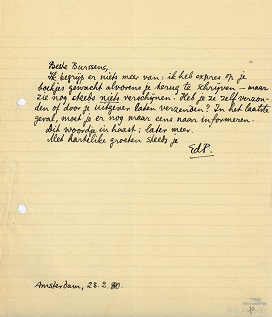 Beste Burssens,
Ik begrijp er niets meer van: ik heb expres op je
boekjes gewacht alvorens je terug te schrijven – maar
zie nog steeds niets verschijnen. Heb je ze zelf verzon-
den of door je uitgever laten verzenden? In het laatste
geval, moet je er nog maar eens naar informeren.
Dit woordje in haast; later meer.
Met hartelijke groeten steeds je
EdP.
Amsterdam, 28.2.30.